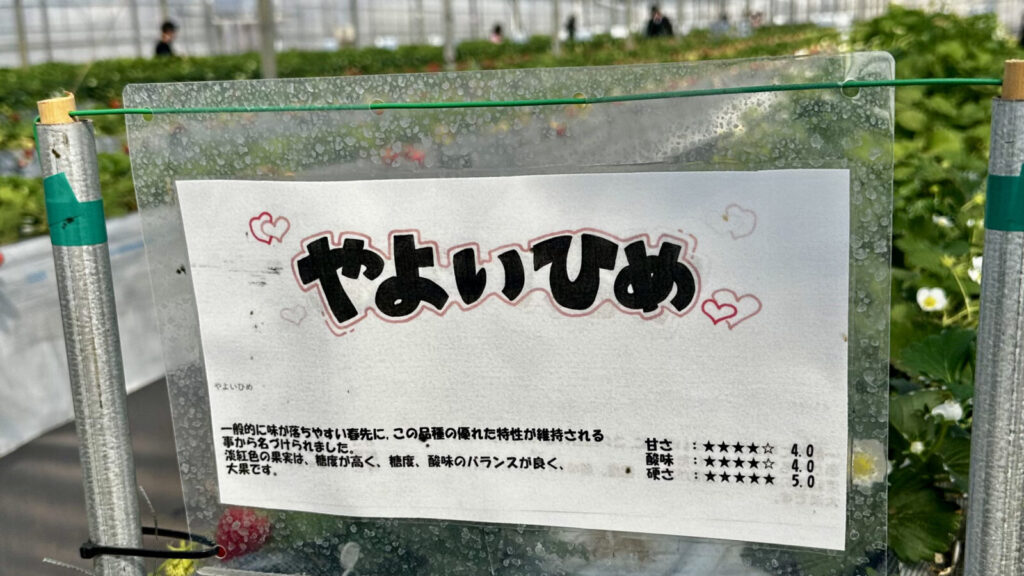 やよいひめ
やよいひめ
一般的に味が落ちやすい春先に、この品種の優れた特性が維持される
事から名づけられました。
淡紅色の果実は、糖度が高く、糖度、酸味のバランスが良く、
大果です。
甘さ :★★★★☆ 4.0
酸味 :★★★★☆ 4.0
硬さ :★★★★★ 5.0